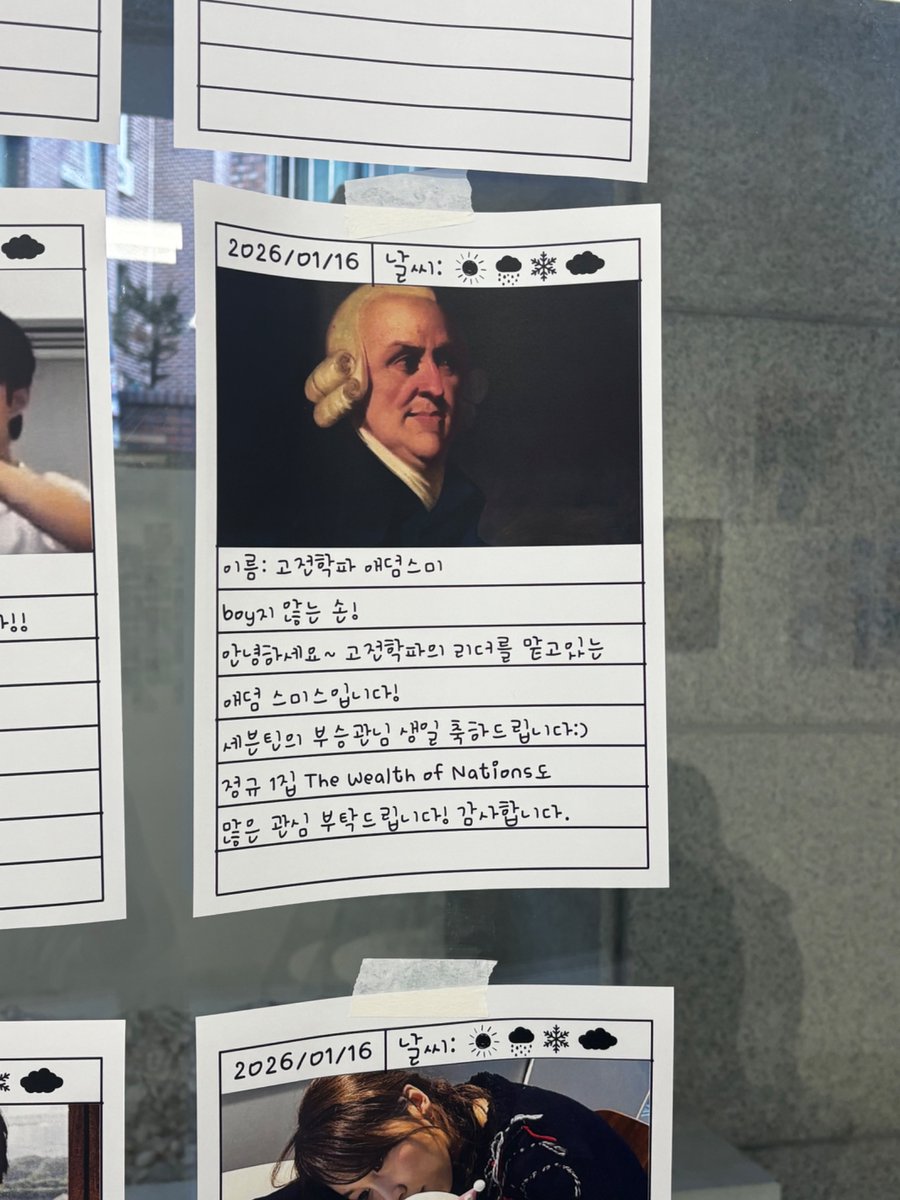 2026/01/16 날씨:
이름: 고전학파 애덤스미
boy지 않는 손!
안녕하세요~ 고전학파의 리더를 맡고있는
애덤 스미스입니다!
세븐틴의 부승관님 생일 축하드립니다:)
정규 1집 The Wealth of Nations도
많은 관심 부탁드립니다! 감사합니다.
2026/01/16 날씨: